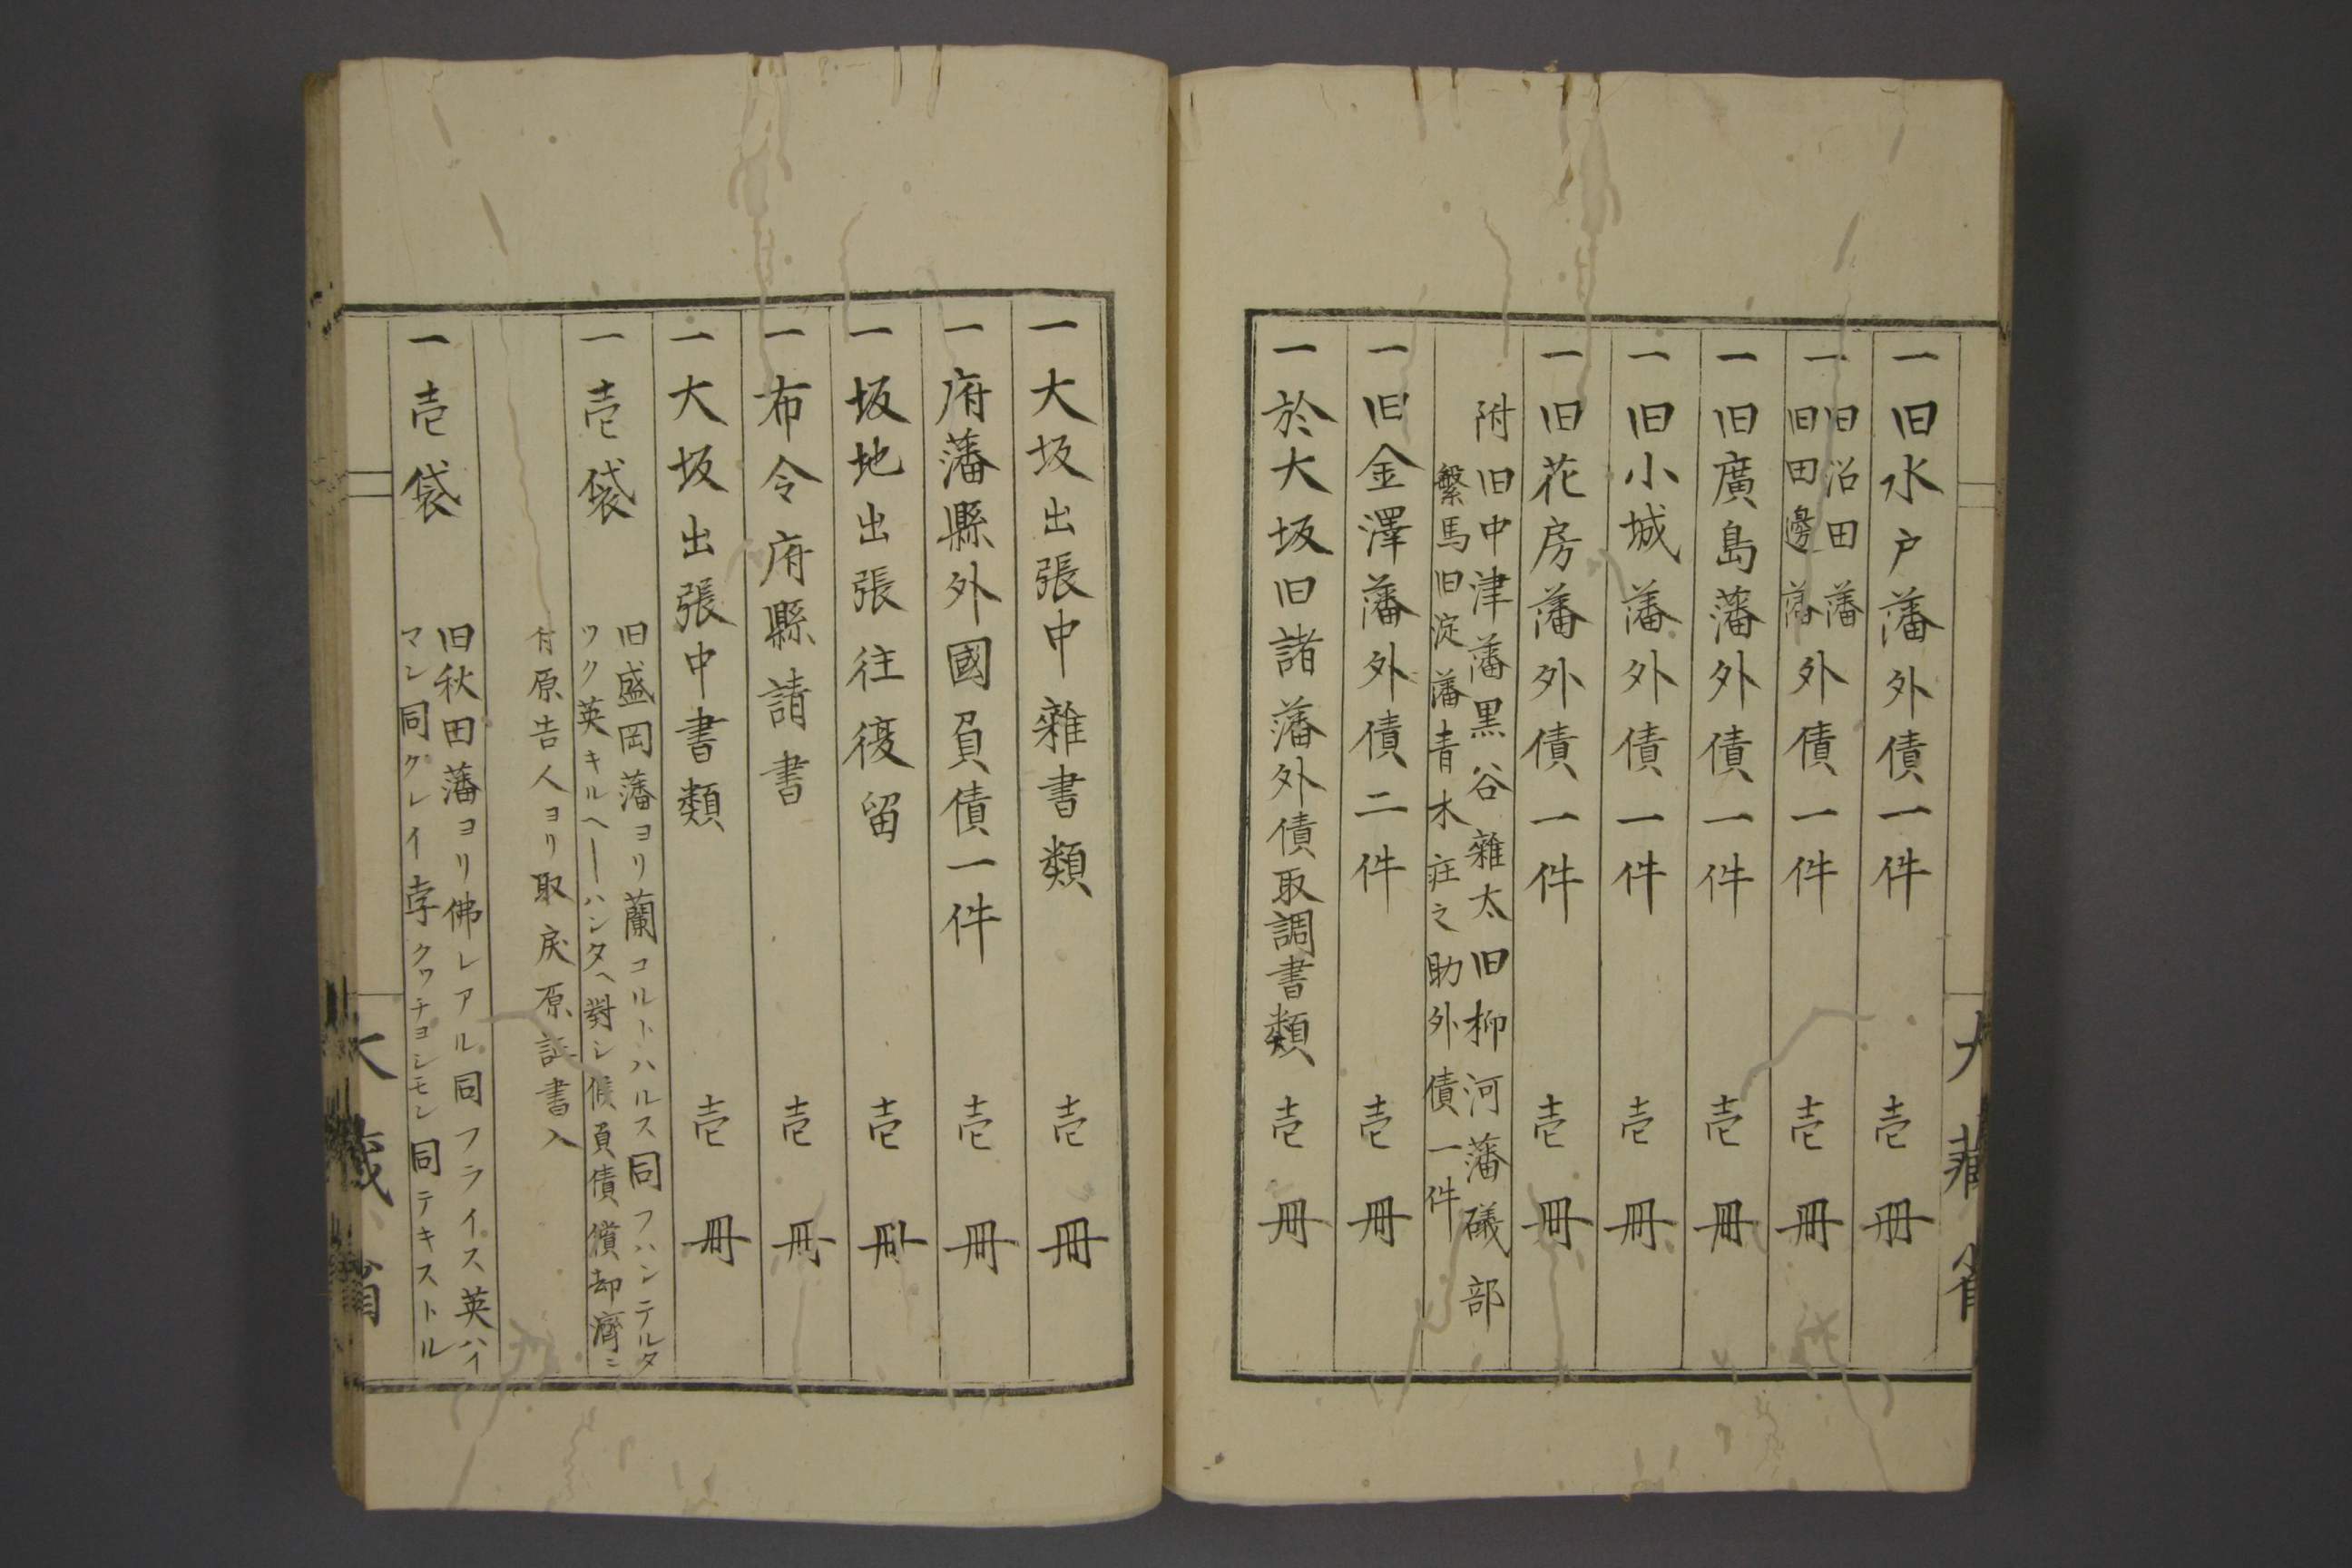 一旧水戸藩外債一件　壱冊
一旧沼田藩
旧田邊藩外債一件　壱冊
一旧廣島藩外債一件　壱冊
一旧小城藩外債一件　壱冊
一旧花房藩外債一件　壱冊
附旧中津藩黒谷雑太旧柳河藩礒部
繁馬旧淀藩青木荘之助外債一件
一旧金澤藩外債二件　壱冊
一於大坂旧諸藩外債取調書類　壱冊
大蔵省
一大坂出張中雜書類　壱冊
一府藩縣外國負債一件　壱冊
一坂地出張往復留　壱冊
一布令府縣請書　壱冊
一大坂出張中書類　壱冊
一壱袋　旧盛岡藩ヨリ蘭コルトハルス同フハンテルタ
ツク英キルヘーハンタヘ對シ候負債償却濟ニ
付原告人ヨリ取戻原証書入
一壱袋　旧秋田藩ヨリ佛レアル同フライス英ハイ
マン同クレイ孛クワチヨシモン同テキストル
大蔵省